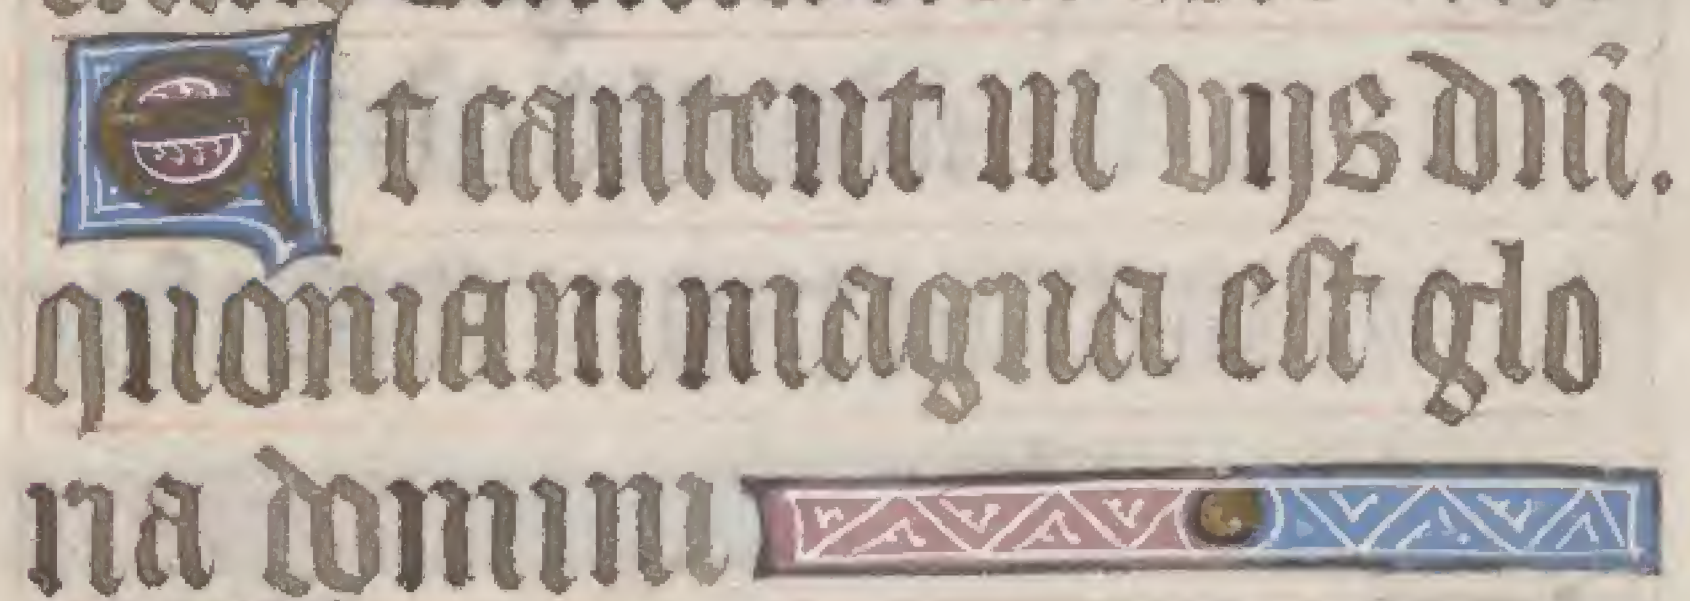 Et cantent in vijs dnī.
quoniam magna est glo
ria domini